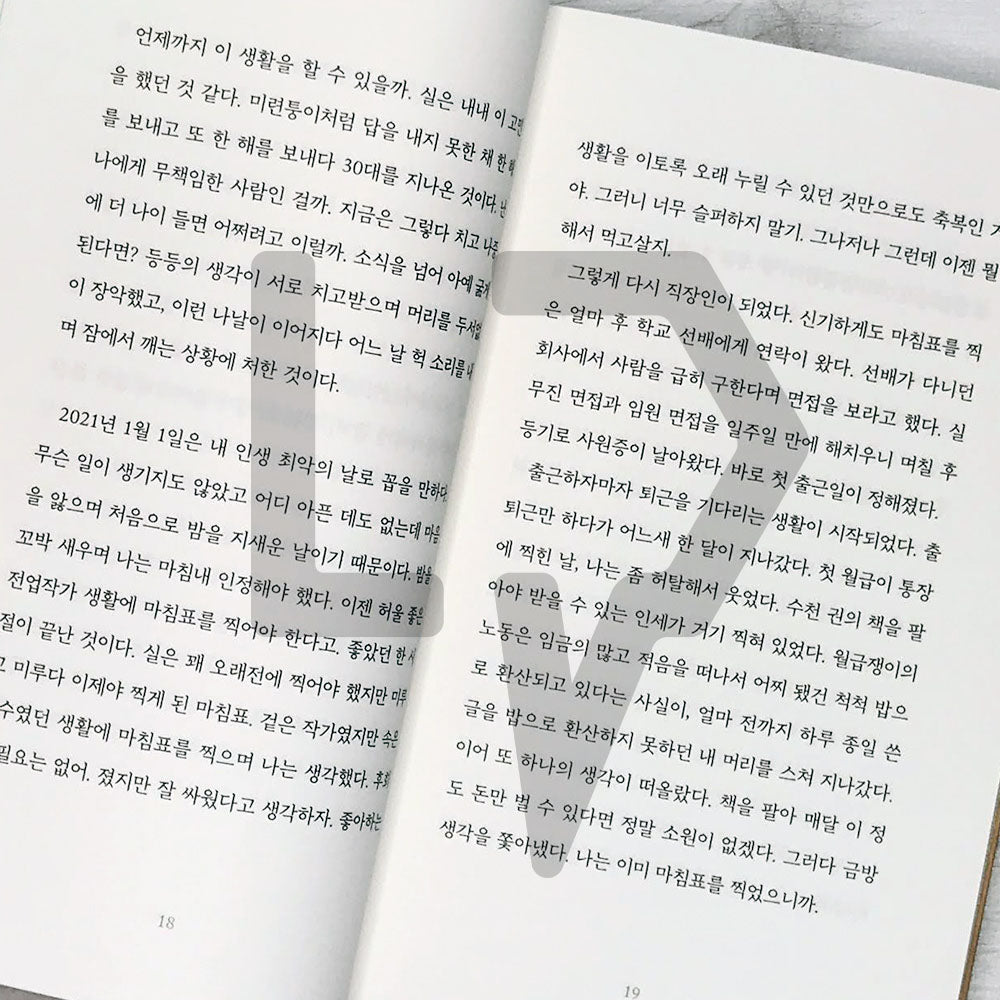 언제까지 이 생활을 할 수 있을까. 실은 내내 이 고민
을 했던 것 같다. 미련퉁이처럼 답을 내지 못한 채 한 해
를 보내고 또 한 해를 보내다 30대를 지나온 것이다. 난
나에게 무책임한 사람인 걸까. 지금은 그렇다 치고 나중
에 더 나이 들면 어쩌려고 이럴까. 소식을 넘어 아예 굶게
된다면? 등등의 생각이 서로 치고받으며 머리를 두서없
이 장악했고, 이런 나날이 이어지다 어느 날 헉 소리를 내
며 잠에서 깨는 상황에 처한 것이다.
2021년 1월 1일은 내 인생 최악의 날로 꼽을 만하다.
무슨 일이 생기지도 않았고 어디 아픈 데도 없는데 마음
을 앓으며 처음으로 밤을 지새운 날이기 때문이다. 밤을
꼬박 새우며 나는 마침내 인정해야 했다. 이젠 허울 좋은
전업작가 생활에 마침표를 찍어야 한다고. 좋았던 한 시
절이 끝난 것이다. 실은 꽤 오래전에 찍어야 했지만 미루
고 미루다 이제야 찍게 된 마침표. 겉은 작가였지만 속은
수였던 생활에 마침표를 찍으며 나는 생각했다. 후회
필요는 없어. 졌지만 잘 싸웠다고 생각하자. 좋아하는
18
생활을 이토록 오래 누릴 수 있던 것만으로도 축복인 거
야. 그러니 너무 슬퍼하지 말기. 그나저나 그런데 이젠 뭘
해서 먹고살지.
그렇게 다시 직장인이 되었다. 신기하게도 마침표를 찍
은 얼마 후 학교 선배에게 연락이 왔다. 선배가 다니던
회사에서 사람을 급히 구한다며 면접을 보라고 했다. 실
무진 면접과 임원 면접을 일주일 만에 해치우니 며칠 후
등기로 사원증이 날아왔다. 바로 첫 출근일이 정해졌다.
출근하자마자 퇴근을 기다리는 생활이 시작되었다. 출
퇴근만 하다가 어느새 한 달이 지나갔다. 첫 월급이 통장
에 찍힌 날, 나는 좀 허탈해서 웃었다. 수천 권의 책을 팔
아야 받을 수 있는 인세가 거기 찍혀 있었다. 월급쟁이의
노동은 임금의 많고 적음을 떠나서 어찌 됐건 척척 밥으
로 환산되고 있다는 사실이, 얼마 전까지 하루 종일 쓴
글을 밥으로 환산하지 못하던 내 머리를 스쳐 지나갔다.
이어 또 하나의 생각이 떠올랐다. 책을 팔아 매달 이 정
도 돈만 벌 수 있다면 정말 소원이 없겠다. 그러다 금방
생각을 쫓아냈다. 나는 이미 마침표를 찍었으니까.
19